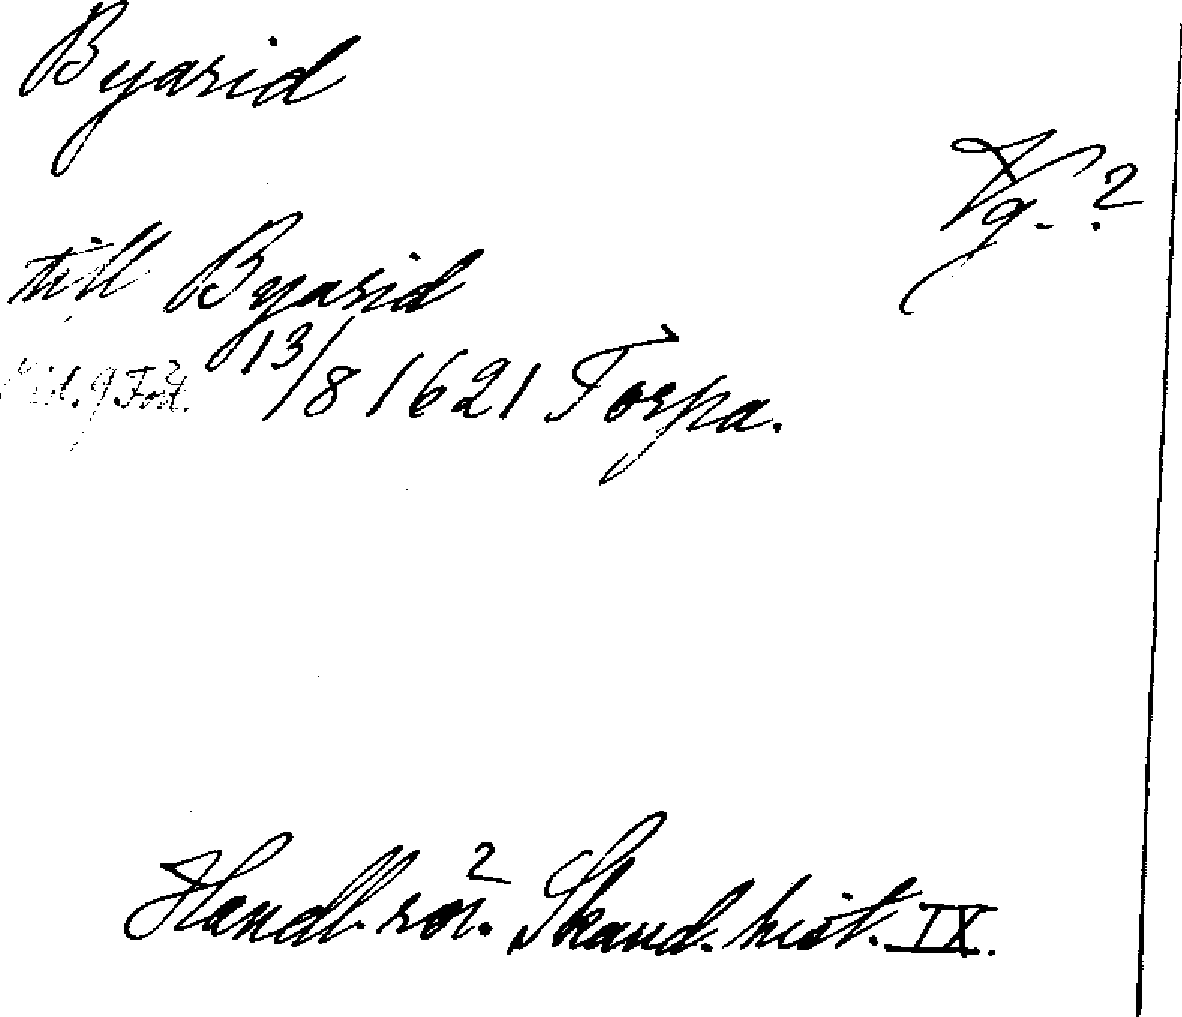 Byarid
Vg. ?
till Byarid
13/8 1621 Torpa.
Handl. rör. Skand. hist. IX.